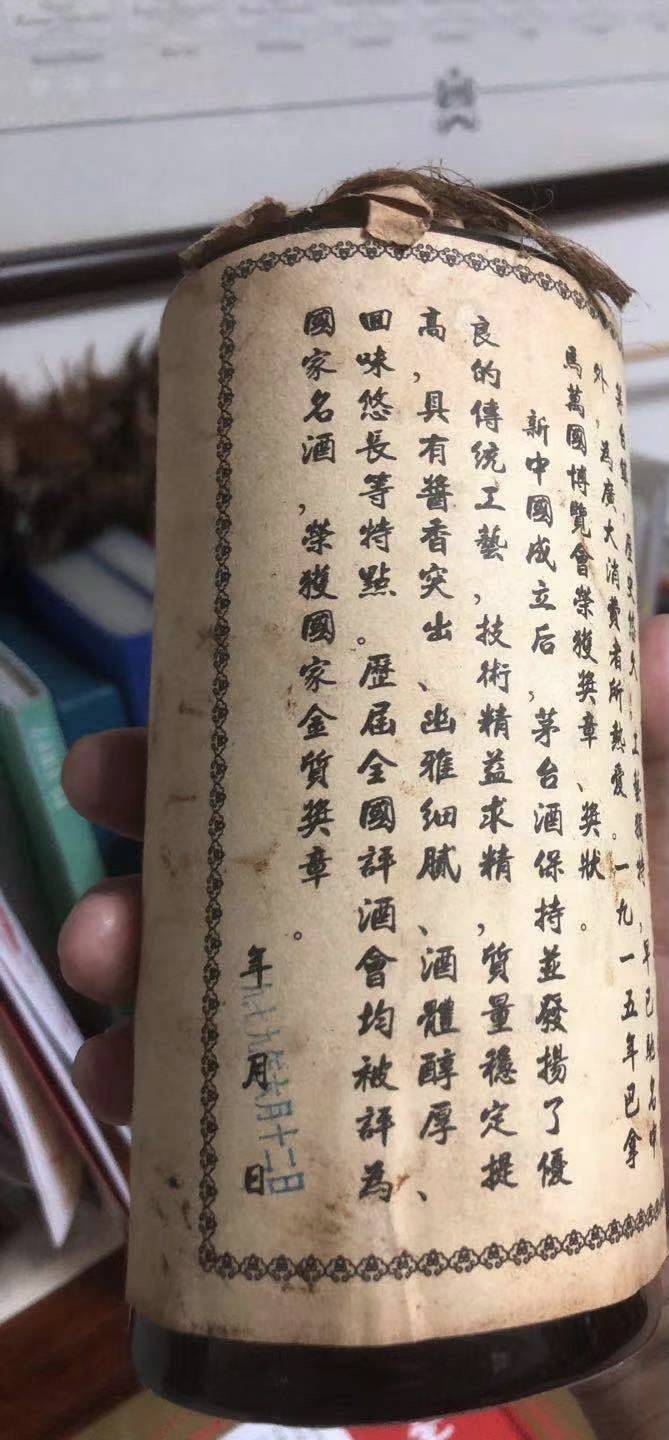 茅台鎮，歷史悠久，工藝獨特，年已馳名中
外，為廣大消費者所熱愛。一九一五年巴拿
馬萬國博覽會榮獲獎章、獎狀。
新中國成立后，茅台酒保持並發揚了優
良的傳統工藝，技術精益求精，質量穩定提
高，具有醬香突出、幽雅細膩、酒體醇厚、
回味悠長等特點。歷屆全國評酒會均被評為
國家名酒，榮獲國家金質獎章。
年 月 日
七月十二日